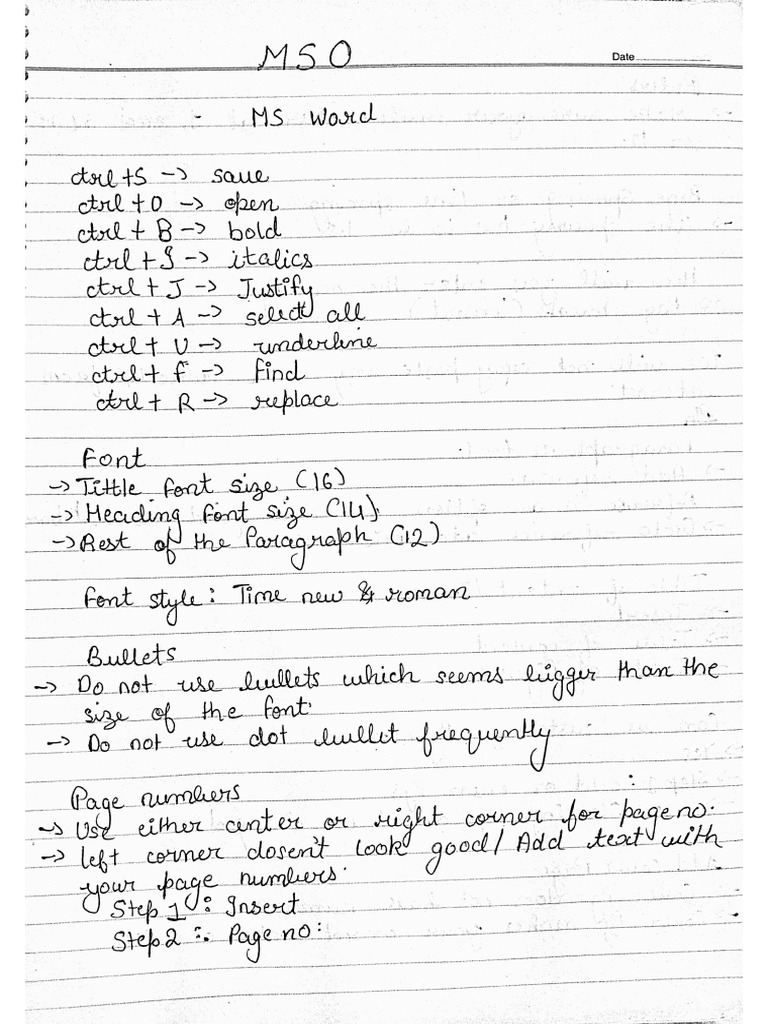 MSO
Date
- MS Word
ctrl+S -> save
ctrl+O -> open
ctrl + B -> bold
ctrl + I -> italics
ctrl + J -> Justify
ctrl + A -> select all
ctrl + U -> underline
ctrl + f -> find
ctrl + R -> replace
Font
-> Tittle font size (16)
-> Heading font size (14).
-> Rest of the Paragraph (12)
Font style: Time new & roman
Bullets
-> Do not use bullets which seems bigger than the
size of the font.
-> Do not use dot bullet frequently
Page numbers :
-> Use either center or right corner for page no.
-> left corner dosen't look good/ Add text with
your page numbers.
Step 1 : Insert
Step 2 :. Page no: